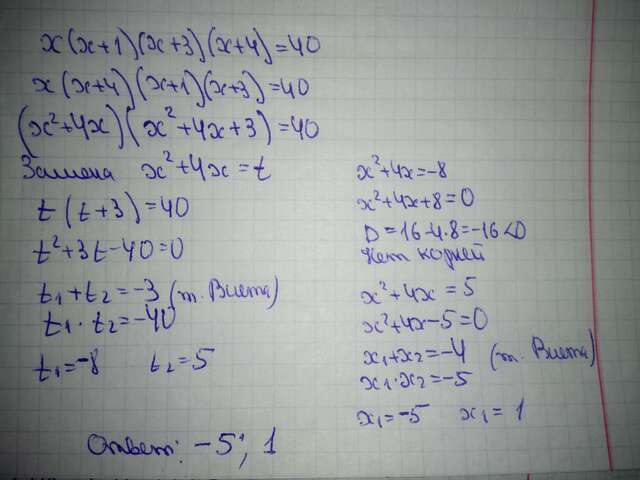 x(x+1)(x+3)(x+4)=40
x(x+4)(x+1)(x+3)=40
(x²+4x)(x²+4x+3)=40
Замена x²+4x=t
t(t+3)=40
t²+3t-40=0
t₁+t₂=-3 (т. Виета)
t₁·t₂=-40
t₁=-8 t₂=5
x²+4x=-8
x²+4x+8=0
D=16-4·8=-16<0
Нет корней
x²+4x=5
x²+4x-5=0
x₁+x₂=-4 (т. Виета)
x₁·x₂=-5
x₁=-5 x₁=1
Ответ: -5; 1